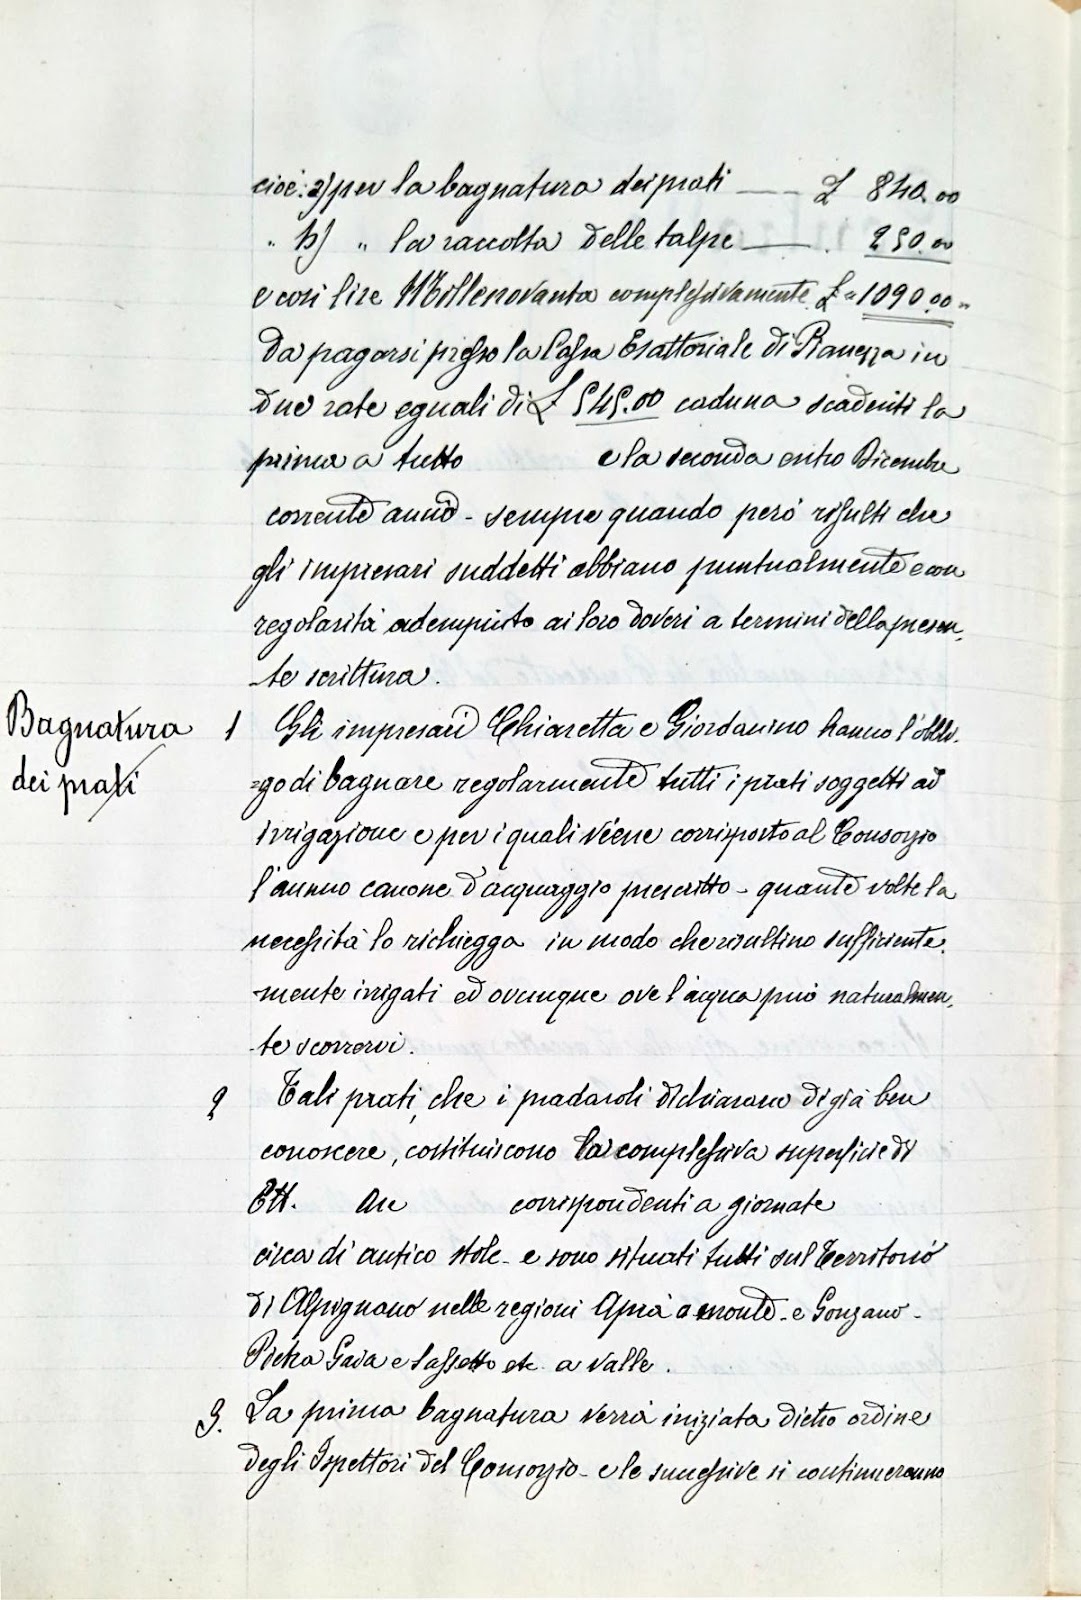 cioè: a) per la bagnatura dei prati — £ 840.00
" b) " la raccolta delle talpe — . 250.00
e così lire Millenovanta complessivamente £ = 1090.00 =
da pagarsi presso la Cassa Esattoriale di Pianezza in
due rate eguali di £ 545.00 caduna scadenti la
prima a tutto e la seconda entro Dicembre
corrente anno - sempre quando però risulti che
gli impresari suddetti abbiano puntualmente e con
regolarità adempiuto ai loro doveri a termini della presen-
-te scrittura.
Bagnatura
dei prati
1 Gli impresari Chiaretta e Giordanino hanno l'obbli-
=go di bagnare regolarmente tutti i prati soggetti ad
irrigazione e per i quali viene corrisposto al Consorzio
l'annuo canone d'acquaggio prescritto - quante volte la
necessità lo richiegga in modo che risultino sufficiente-
-mente irrigati ed ovunque ove l'acqua può naturalmen-
-te scorrervi.
2 Tali prati, che i pradaroli dichiarano di già ben
conoscere, costituiscono la complessiva superficie di
Ett. Are corrispondenti a giornate
circa di antico stole - e sono situati tutti sul Territorio
di Alpignano nelle regioni Aprà a monte - e Gonzano -
Pietra Gaia e Sassetto etc. a valle.
3. La prima bagnatura verrà iniziata dietro ordine
degli Ispettori del Consorzio - e le successive si continueranno